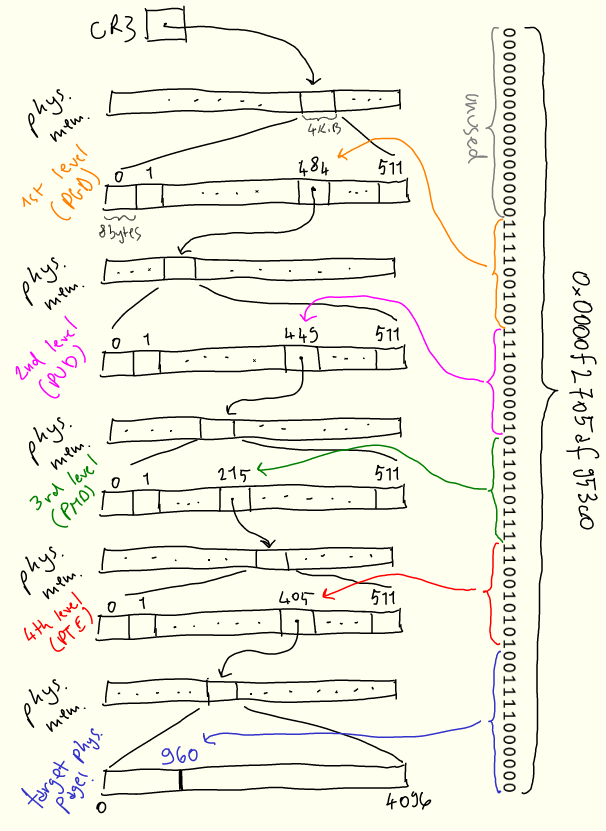 CR3
phys.
mem.
4KiB
unused
1st level
(PGD)
0 1 484 511
8bytes
phys.
mem.
2nd level
(PUD)
0 1 449 511
phys.
mem.
3rd level
(PMD)
0 1 215 511
phys.
mem.
4th level
(PTE)
0 1 405 511
phys.
mem.
target phys.
page:
960
0 4096
0000000000000000111100100111000001011010111110010101001111000000
0x0000f2705af953c0